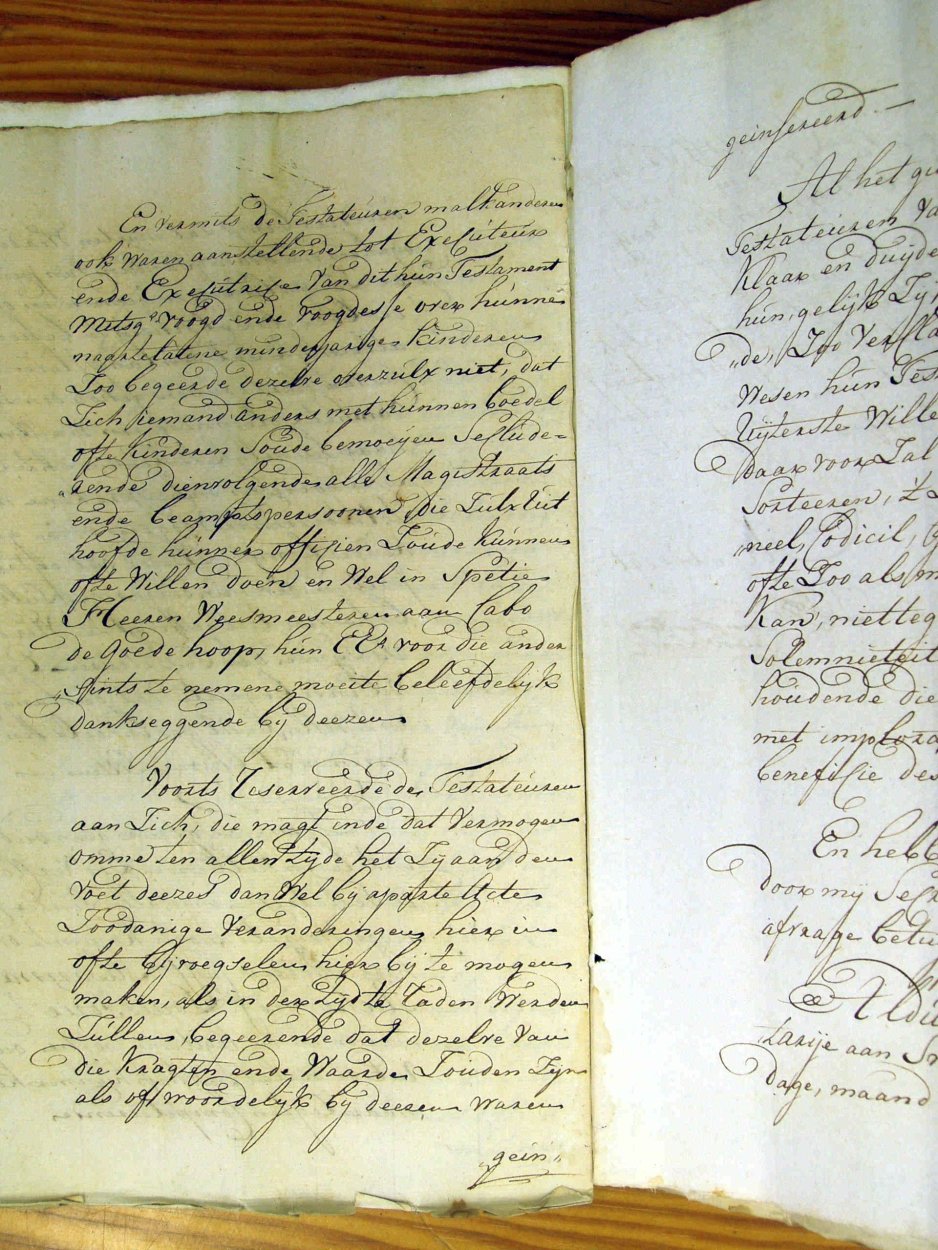 En vermits de Testateuren malkanderen
ook waren aanstellende tot Executeur
ende Executrice van dit hun Testament
Mitsgs. voogd ende voogdesse over hunne
nagelatene minderjarige kinderen
Zoo begeerde dezelve overzulx niet, dat
Zich iemand anders met hunnen boedel
ofte kinderen Soude bemoeyen Seclude-
„rende dienvolgende alle Magistraats
ende beampts persoonen, die Zulx uit
hoofde hunner officien Zoude kunnen
ofte Willen doen en Wel in Spetie
Heeren Weesmeesteren aan Cabo
de goede hoop, hun EEs. voor die ander
„sints te nemene moeite beleefdelijk
dankseggende bij deezen
Voorts reserveerde de Testateuren
aan Zich, die magt inde dat vermogen
omme ten allen tyde het Zy aan den
voet deezes dan Wel bij aparte Acte
Zoodanige veranderingen hier in
ofte bijvoegselen hier bij te mogen
maken, als in der tyd te Raden Werden
Zullen, begeerende dat dezelve van
die Kragten ende Waarde Zouden Zyn
als of woordelijk bij deezen waren
„gein„
geinsereerd
Al het
Testateuren
Klaar en
hun, gelijk
„de, Zoo
Wesen hun
Uyterste Wille
daar voor Zal
Sorteeren,
neel, Codicil,
ofte Zoo als
Kan,
houdende die
met
beneficie des
En
door mij
afvrage
aan
dage, maand